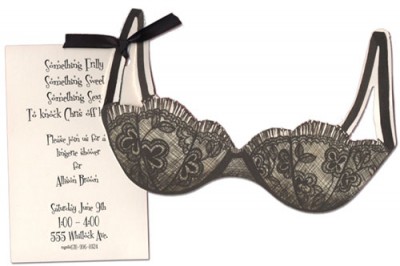 Something Frilly
Something Sweet
Something Sexy
To knock Chris off h
Please join us for a
lingerie shower
for
Allison Brown
Saturday June 9th
1:00 - 4:00
555 Whitlock Ave.